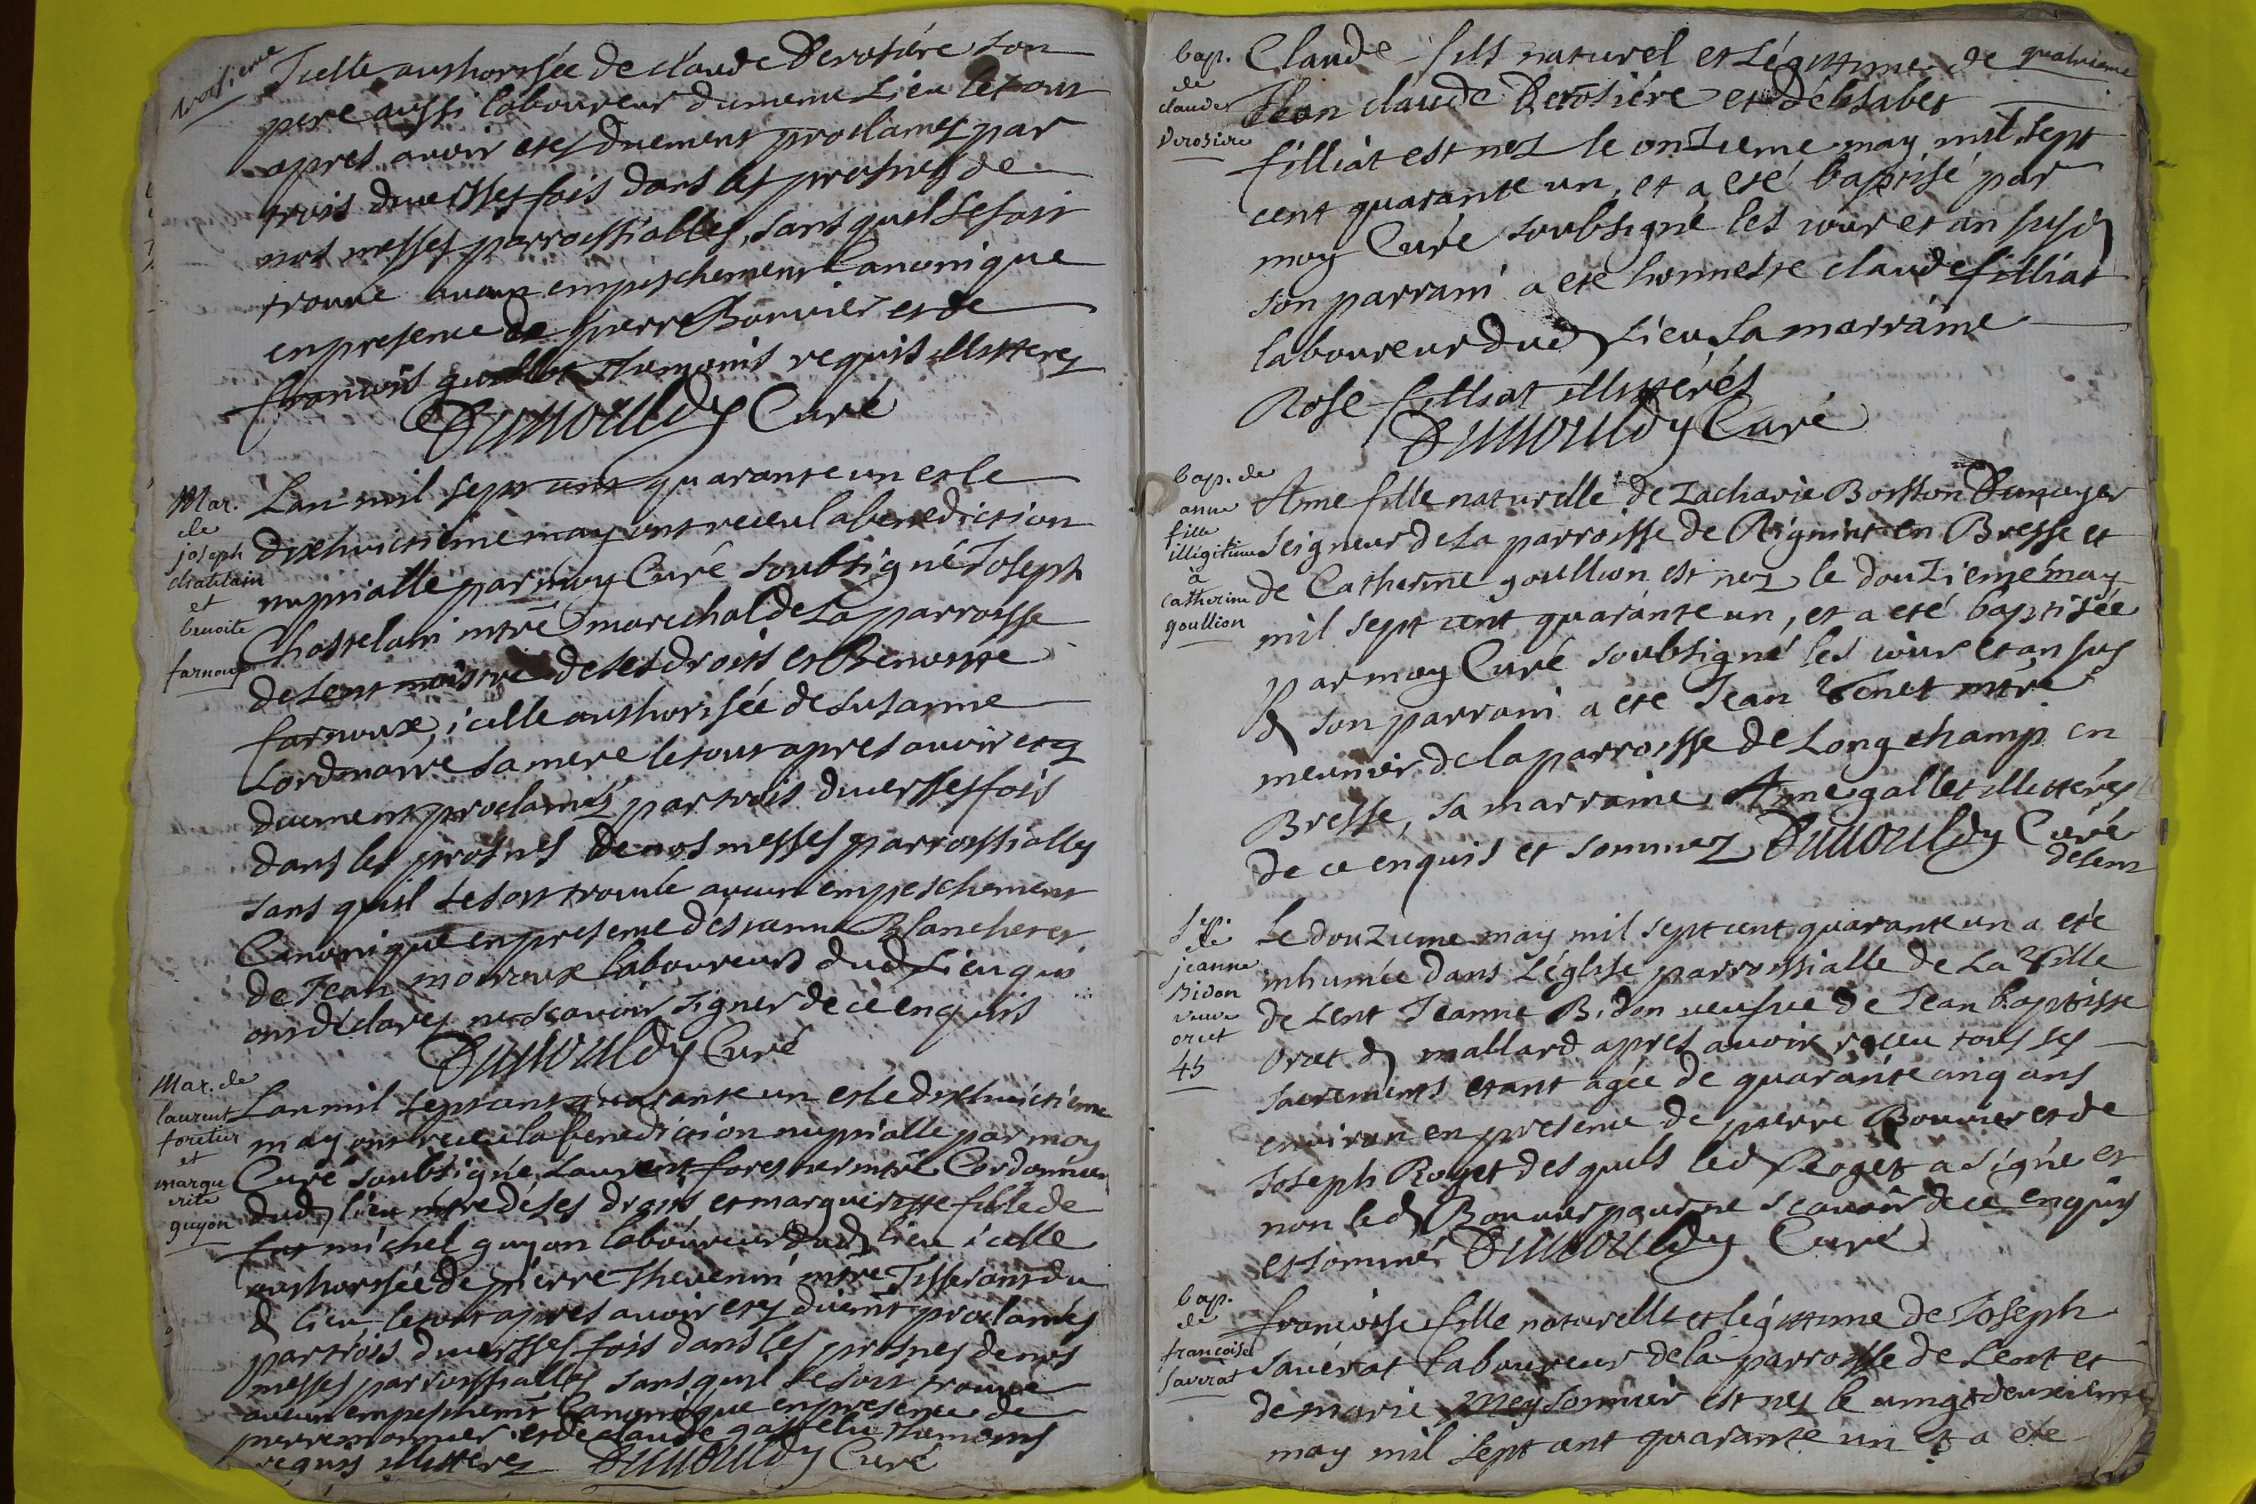 troisieme
Icelle authorisée de claude Derosiére son
pere aussi laboureur dumeme Lieu le tout
apres avoir etes duement proclames par
trois diversses fois dans les prosnes de
nos messes parroissialles, sans quil se soit
trouvé aucun empeschement Canonique
en presence de pierre Bouvier et de
francois guillot themoins requis illitteres
Dumouldy Curé
Mar.
de
joseph
chatelain
et
benoite
farnoux
Lan mil sept cent quarante un et le
dixhuictieme may ont receu la benediction
nuptialle par moy Curé soubsigné Joseph
Chastelain mtre marechal de La parroisse
de Lent maistre de ses droits et Benoitte
farnoux, icelle authorisée de Susanne
Lordinaire sa mere le tout apres avoir etez
duement proclamés par trois diversses fois
dans les prosnes de nos messes parroissialles
sans quil se soit trouvé aucun empeschement
Canonique en presence destienne Blancheret
de Jean moiroux laboureurs dud Lieu qui
ont déclarez ne scavoir signer de ce enquis
Dumouldy Curé
Mar. de
laurent
foretier
et
margue
rite
guyon
Lan mil sept cent quarante un et le dixhuictieme
may ont receu la benediction nuptialle par moy
Curé soubsigné Laurent forestier mtre Cordonnier
dud lieu mtre de ses droits et margueritte fille de
fut michel guyon laboureur dud lieu icelle
authorisée de pierre Thevenin mtre Tisserant du
d lieu le tout apres avoir etez duemt proclamés
par trois diversses fois dans les prosnes de nos
messes parroissialles sans quil se soit trouvé
aucun empeschemt Canonique en presence de
pierre monnier et de claude gattelu themoins
requis illitterez Dumouldy Curé
quatrieme
bap.
de
claude
Derosiere
Claude fils naturel et Légittime de
Jean claude Derosiére et délisabet
filliat est nez le onzieme may mil sept
cent quarante un, et a eté baptisé par
moy Curé soubsigné les jour et an susd
son parrain a eté honneste claude filliat
laboureur dud Lieu sa marraine
Rose filliat illittérés
Dumouldy Curé
bap. de
anne
fille
illégitime
a
catherine
goullion
Anne fille naturelle de Zacharie Boisson Dunoyer
Seigneur de La parroisse de Rignint en Bresse et
de Catherine goullion est nez le douzieme may
mil sept cent quarante un, et a eté baptisée
par moy Curé soubsigné les jour et an sus
d son parrain a eté Jean Venet mtre
meunier de la parroisse de Longchamp en
Bresse, sa marraine, Anne gallet illitteréz
de ce enquis et sommez Dumouldy Curé
de Lent
Sep.
de
jeanne
Bidon
veuve
oret
45
Le douzieme may mil sept cent quarante un a eté
inhumée dans Léglise parroissialle de La Ville
de Lent Jeanne Bidon veufve de Jean baptiste
oret d mallard apres avoir receu tous ses
sacrements etant agée de quarante cinq ans
environ en presence de pierre Bouvier et de
Joseph Roget desquels led Roget a signé et
non led Bouvier pour ne scavoir de ce enquis
et sommé Dumouldy Curé
bap.
de
francoise
saverat
francoise fille naturelle et légittime de Joseph
Saverat laboureur de la parroisse de Lent et
de marie Meysonnier est nez le vingt deuxieme
may mil sept cent quarante un et a eté